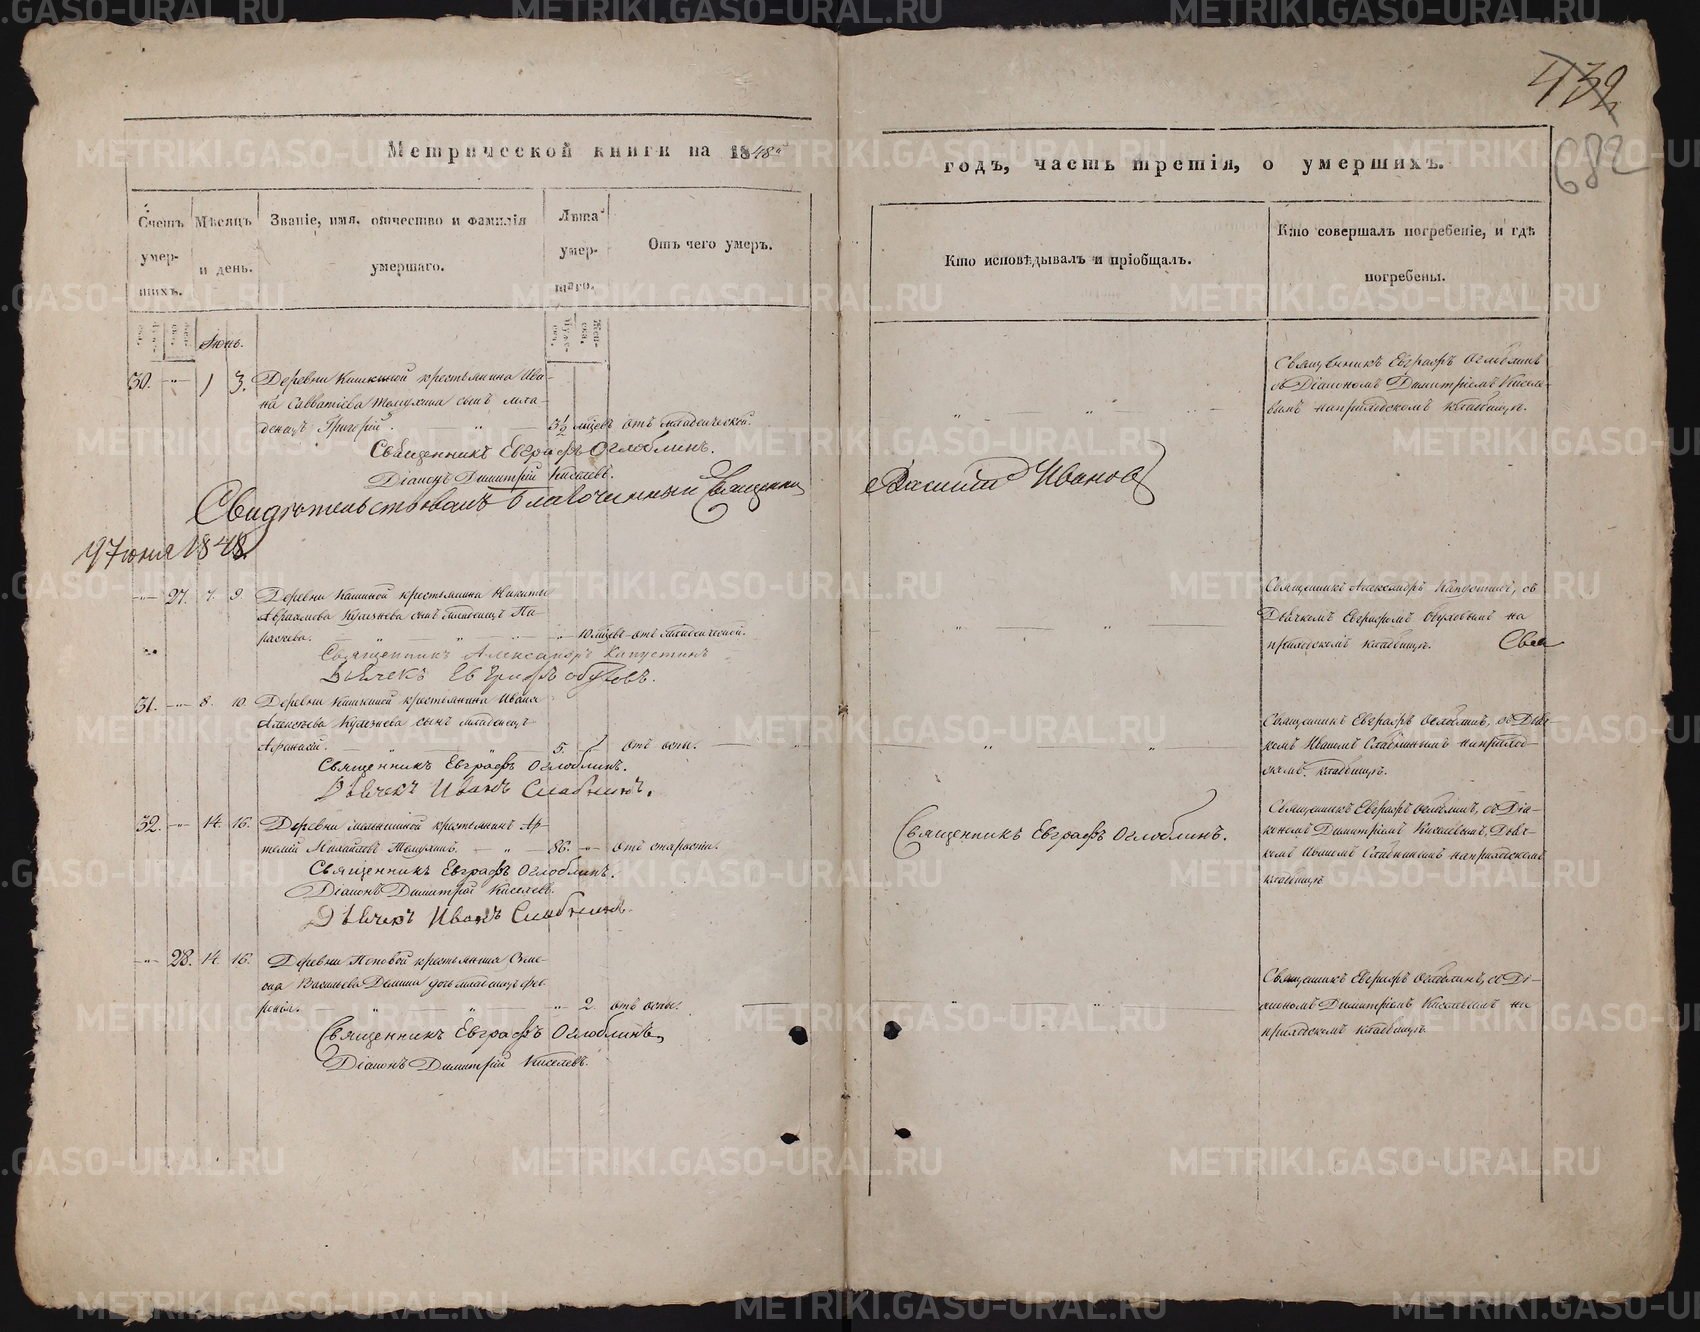 439
682
Метрической книги на 1848й
годъ, часть третія, о умершихъ.
Счетъ умершихъ.
Мѣсяцъ и день.
Званіе, имя, отчество и фамилія умершаго.
Лѣта умершаго.
Отъ чего умеръ.
Кто исповѣдывалъ и пріобщалъ.
Кто совершалъ погребеніе, и гдѣ погребены.
Іюнь.
30. 1 3. Деревни крестьянина Ива-
на Савватіева сынъ мла-
денецъ Григорій. 3½ мѣсец. отъ младенческой.
Священникъ Евграфъ Оглоблинъ
съ Діакономъ Димитріемъ Киселе-
вымъ на приходскомъ кладбищѣ.
Священникъ Евграфъ Оглоблинъ.
Діаконъ Димитрій Киселевъ.
Свидѣтельствовалъ Благочинный Священникъ
Василій Ивановъ
19 Іюня 1848
27. 7. 9. Деревни крестьянина Никиты
Авраамова младенецъ Па-
раскева. 10 мѣсец. отъ младенческой.
Священникъ Александръ Капустинъ, съ
Дьячкомъ Евграфомъ на
приходскомъ кладбищѣ.
Священникъ Александръ Капустинъ
Дьячекъ Евграфъ
31. 8. 10. Деревни крестьянина Ивана
Алексѣева сынъ младенецъ
Афанасій. 5. отъ оспы.
Священникъ Евграфъ Оглоблинъ, съ Дьяч-
комъ Иваномъ Слабнинымъ на приход-
скомъ кладбищѣ.
Священникъ Евграфъ Оглоблинъ.
Дьячекъ Иванъ Слабнинъ.
32. 14. 16. Деревни крестьянинъ Ар-
темій Михайловъ 86. отъ старости.
Священникъ Евграфъ Оглоблинъ.
Священникъ Евграфъ Оглоблинъ, съ Діа-
кономъ Димитріемъ Киселевымъ, Дьяч-
комъ Иваномъ Слабнинымъ на приходскомъ
кладбищѣ
Священникъ Евграфъ Оглоблинъ.
Діаконъ Димитрій Киселевъ.
Дьячекъ Иванъ Слабнинъ.
28. 14. 16. Деревни Поповой крестьянина Симе-
она Васильева Демина дочь младенецъ Фев-
ронія. 2. отъ оспы.
Священникъ Евграфъ Оглоблинъ, съ Ді-
акономъ Димитріемъ Киселевымъ на
приходскомъ кладбищѣ
Священникъ Евграфъ Оглоблинъ,
Діаконъ Димитрій Киселевъ.
METRIKI.GASO-URAL.RU